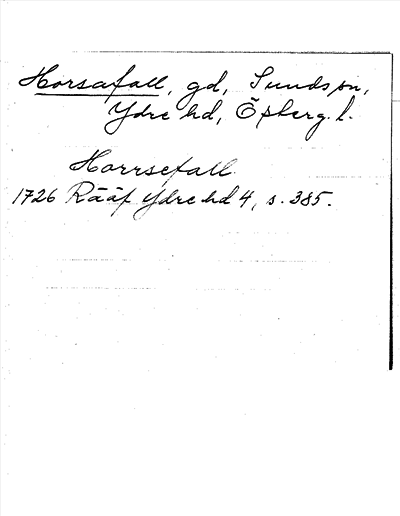 Horsafall, gd, Sunds sn,
Ydre hd, Östergl.
Horrsefall
1726 Rääf Ydre hd 4, s. 385.